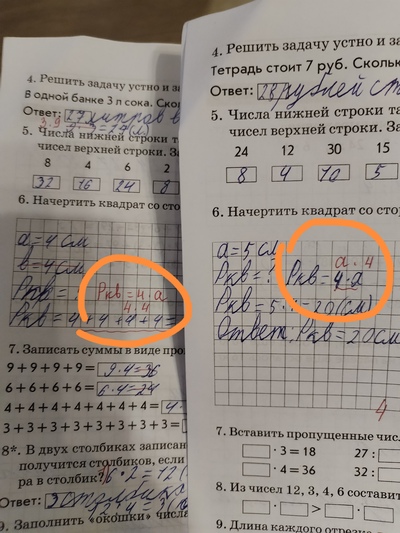 4. Решить задачу устно и за
В одной банке 3 л сока. Ско
Ответ:
5. Числа нижней строки та
чисел верхней строки. За
8 4 6 2
32 16 24 8
6. Начертить квадрат со сто
a = 4 см
в = 4 см
Pкв =
Pкв = 4 · a
Pкв = 4 + 4 + 4 + 4 =
7. Записать суммы в виде про
9 + 9 + 9 + 9 = 9 · 4 = 36
6 + 6 + 6 + 6 = 6 · 4 = 24
4 + 4 + 4 + 4 + 4 + 4 + 4 = 4
3 + 3 + 3 + 3 + 3 + 3 + 3 + 3 = 3
8*. В двух столбиках записан
получится столбиков, если
ра в столбик?
Ответ: столбика
9. Заполнить «окошки» числа
4. Решить задачу устно и за
Тетрадь стоит 7 руб. Сколь
Ответ: 28 рублей ст
5. Числа нижней строки та
чисел верхней строки. За
24 12 30 15
8 4 10 5
6. Начертить квадрат со сто
a = 5 см
a · 4
Pкв = ? Pкв = 4 · a
Pкв = 5 · = 20 (см)
Ответ: Pкв = 20 см
4
7. Вставить пропущенные чис
· 3 = 18 27 :
· 4 = 36 32 :
8. Из чисел 12, 3, 4, 6 составить
· > ·
9. Длина каждого отрезка